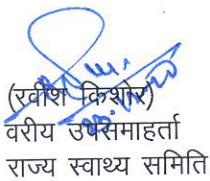 (रवीश किशोर)
वरीय उपसमाहर्ता
राज्य स्वाथ्य समिति